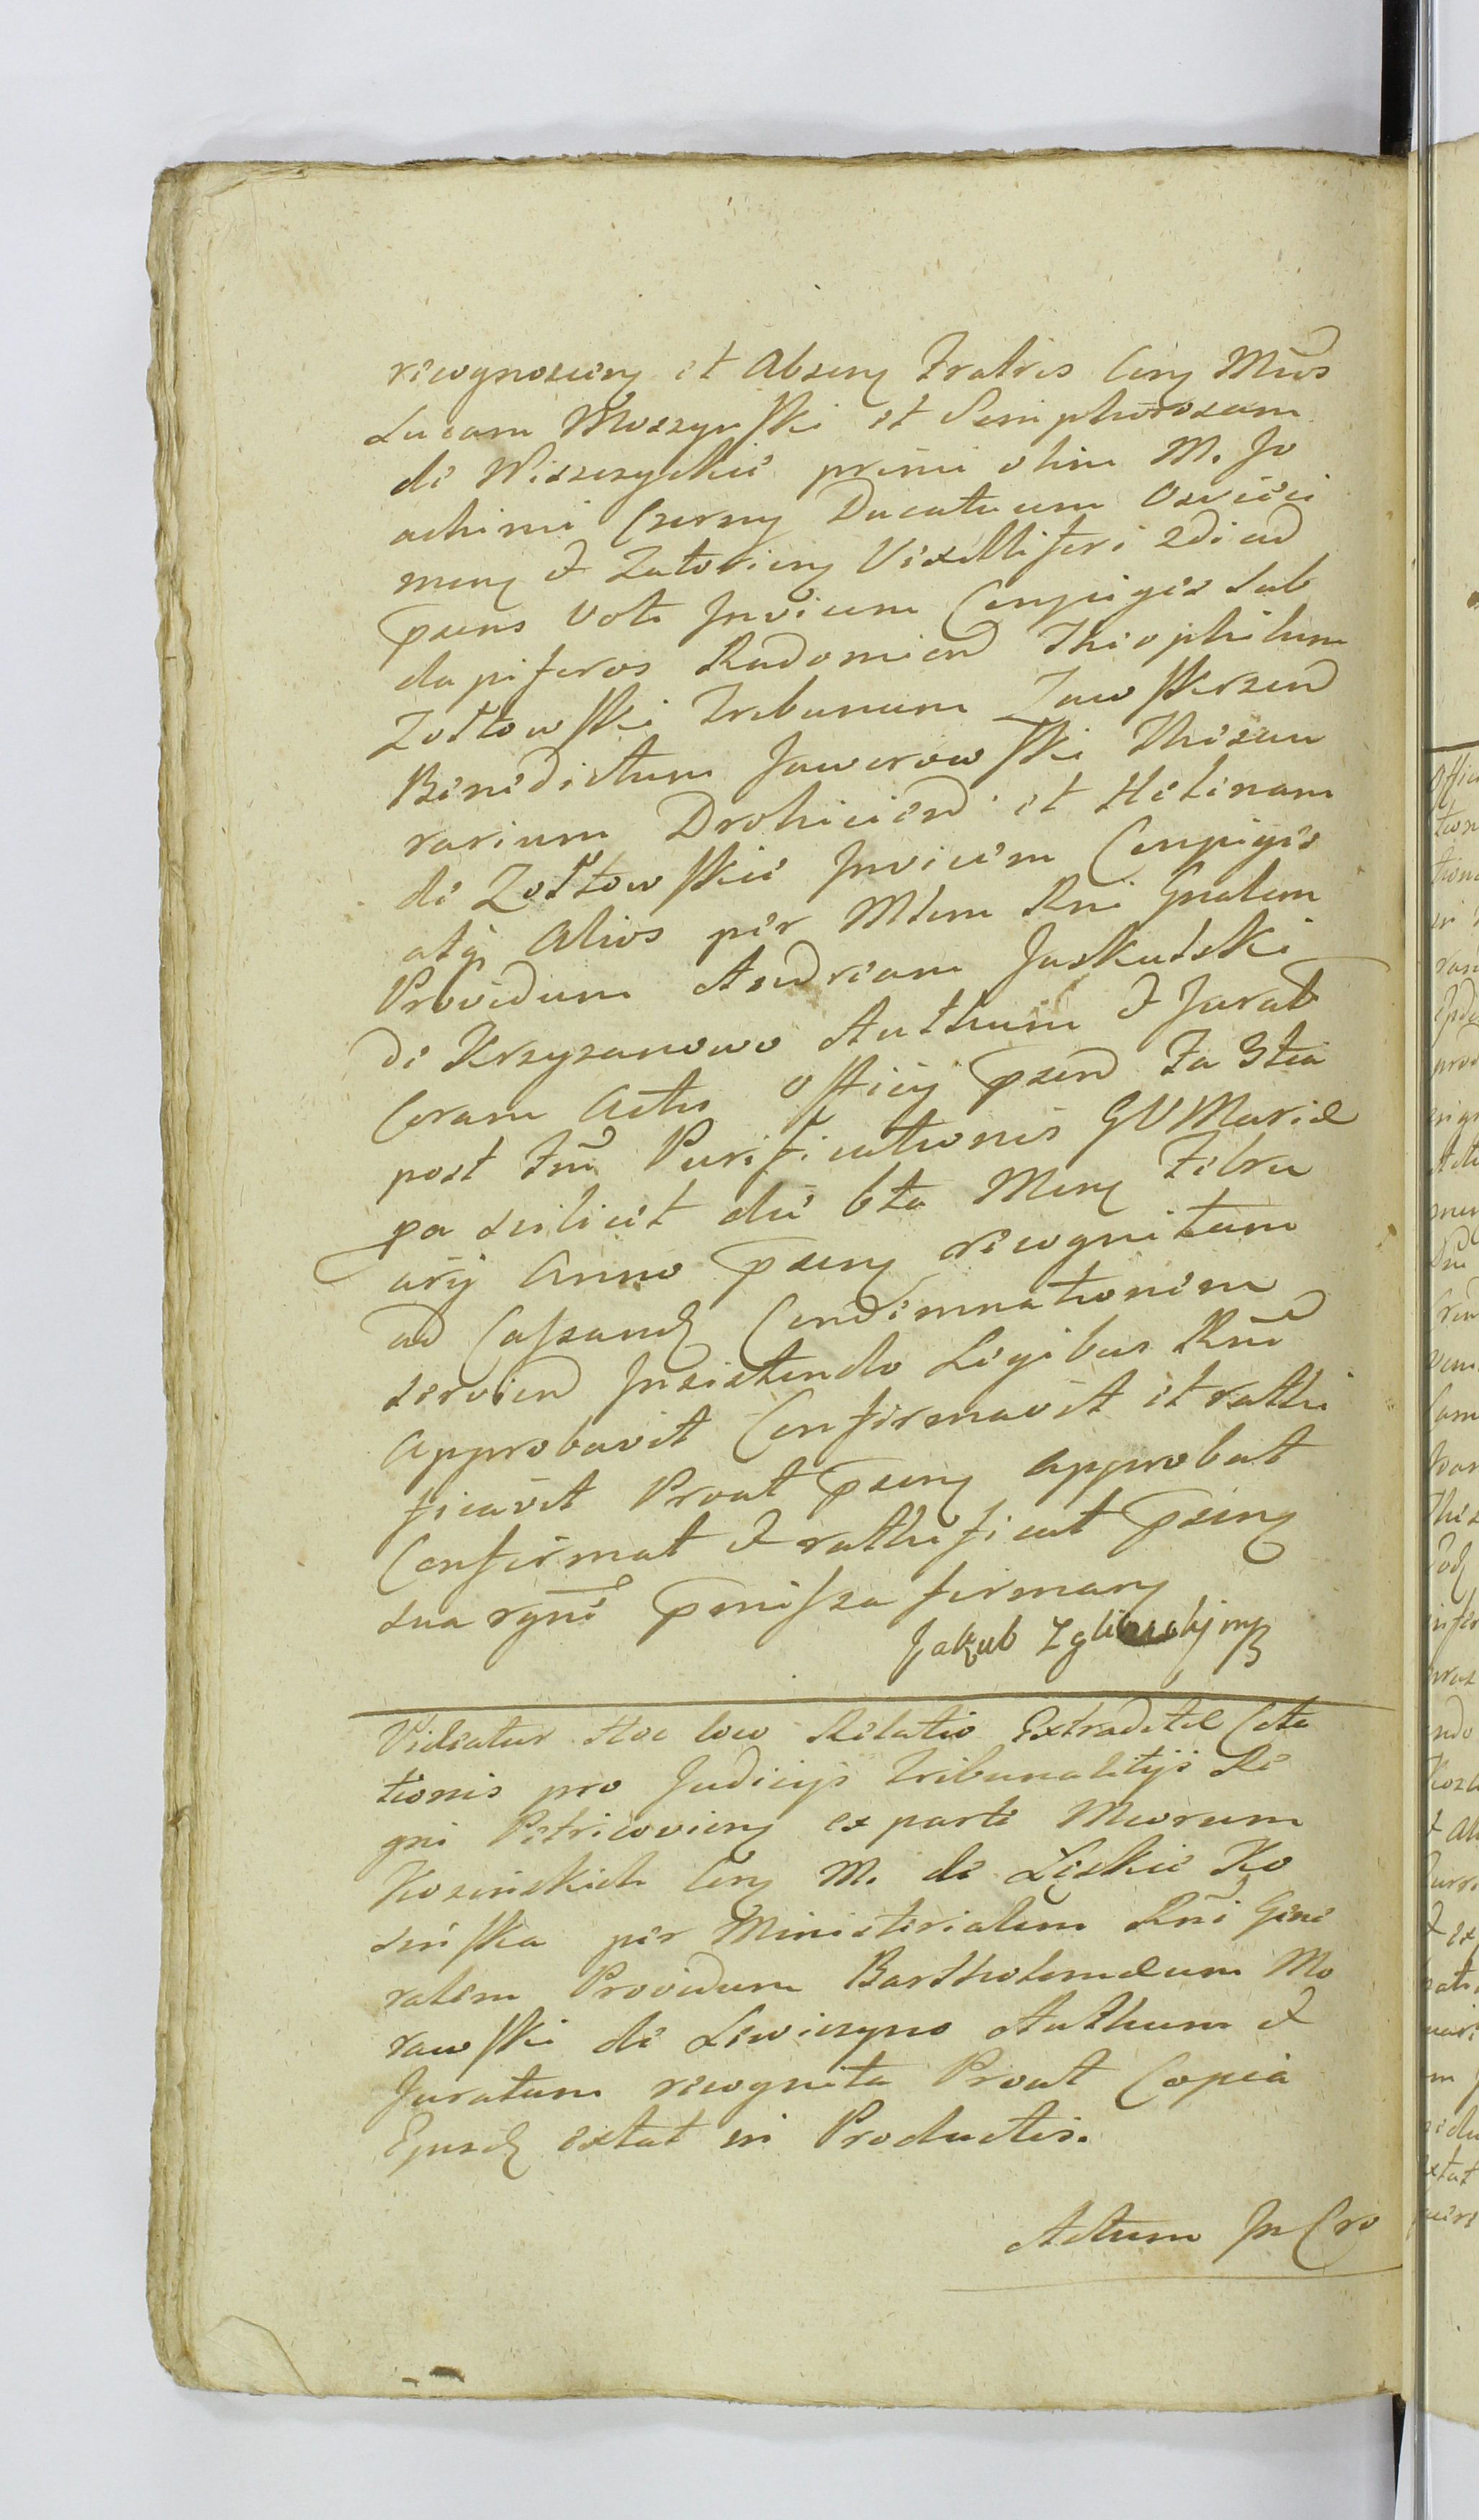 recognoscen et absen Fratris Cen Mcos
Lucam Moszynski et Semphorosam
de Wiszczyckie primi olim M. Jo
achimi Czerny Ducatuum Osvieci
men & Zatorien Vexilliferi 2di ad
pzens Voti Invicem Conjuges Sub
dapiferos Radomien Theophilum
Zołtowski Tribunum Zawskrzen
Benedictum Jaworowski Thesau
rarium Drohicien et Helenam
de Zołtowskie Invicem Conjuges
atq Alios per Mlem Rni Gnalem
Providum Andream Jaskulski
de Krzyzanowo Authum & Jurat
Coram Actis Officy pzen Fa 3tia
post Fm Purificationis GVMariæ
pa scilicet die 6ta Men Febru
arij Anno pzen recognitum
ad Cassand Condemnationem
servien Insistendo Legibus Rni
Approbavit Confirmavit et ratthi
ficavit Prout pzen approbat
Confirmat & ratthificat pzen
sua rgni pmissa firman
Jakub Zgliński mp
Videatur Hoc loco Relatio Extraditæ Cita
tionis pro Judicijs Tribunalitijs Re
gni Petricovien ex parte Mcorum
Kosinskich Cen M. de Leskie Ko
sinska per Ministerialem Rni Gene
ralem Providum Bartholomæum Mo
rawski de Lewiczyno Authum &
Juratum recognita Prout Copia
Ejusd extat in Productis.
Actum In Cro